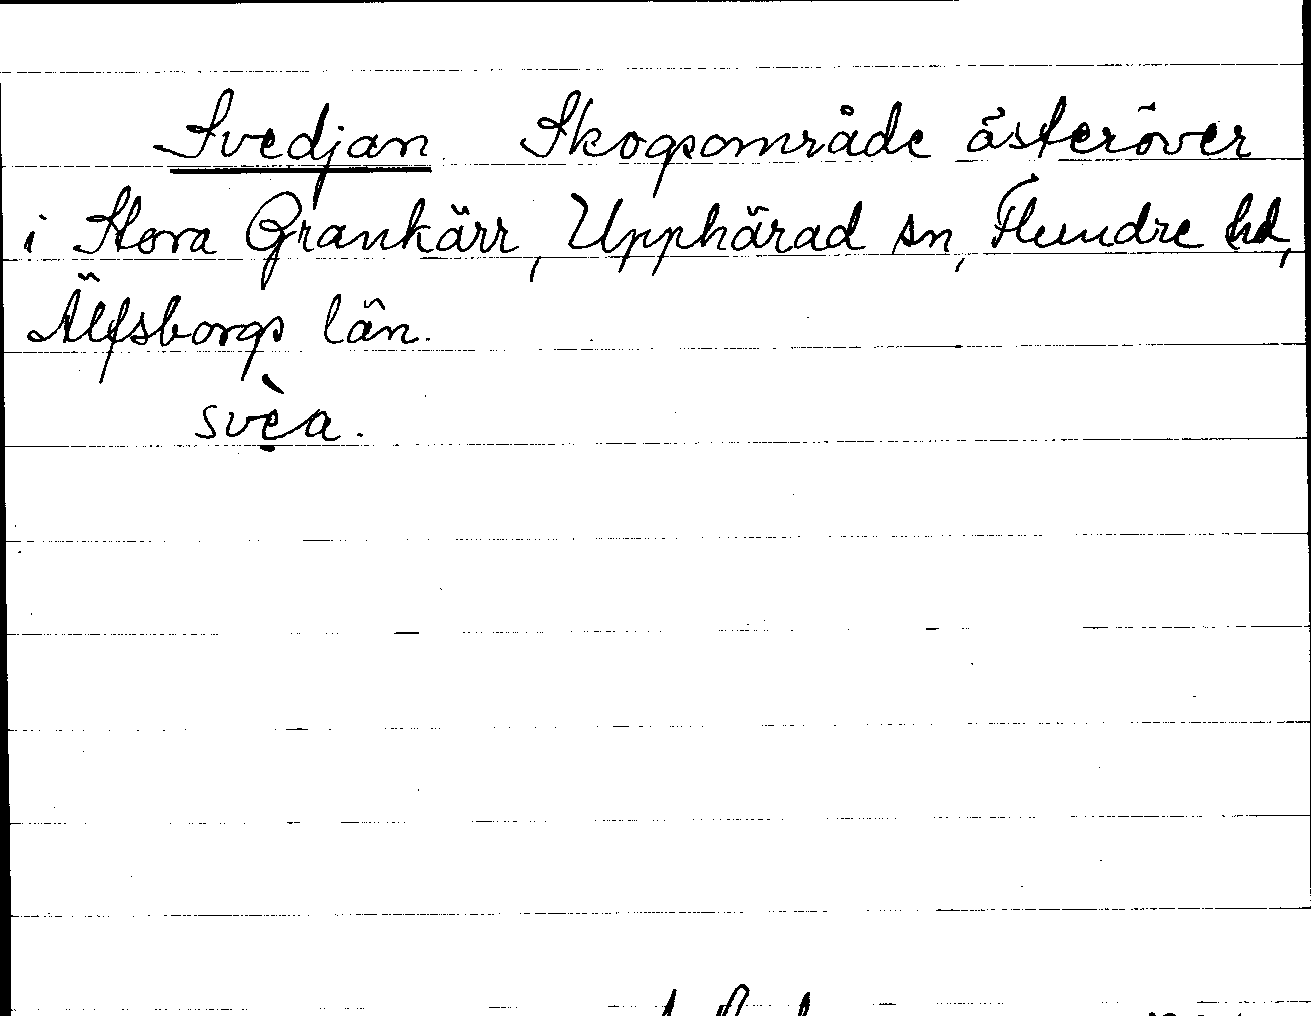 Svedjan. Skogsområde österöver
i Stora Grankärr, Upphärad sn, Flundre hd,
Älfsborgs län.
svẹ̀a.